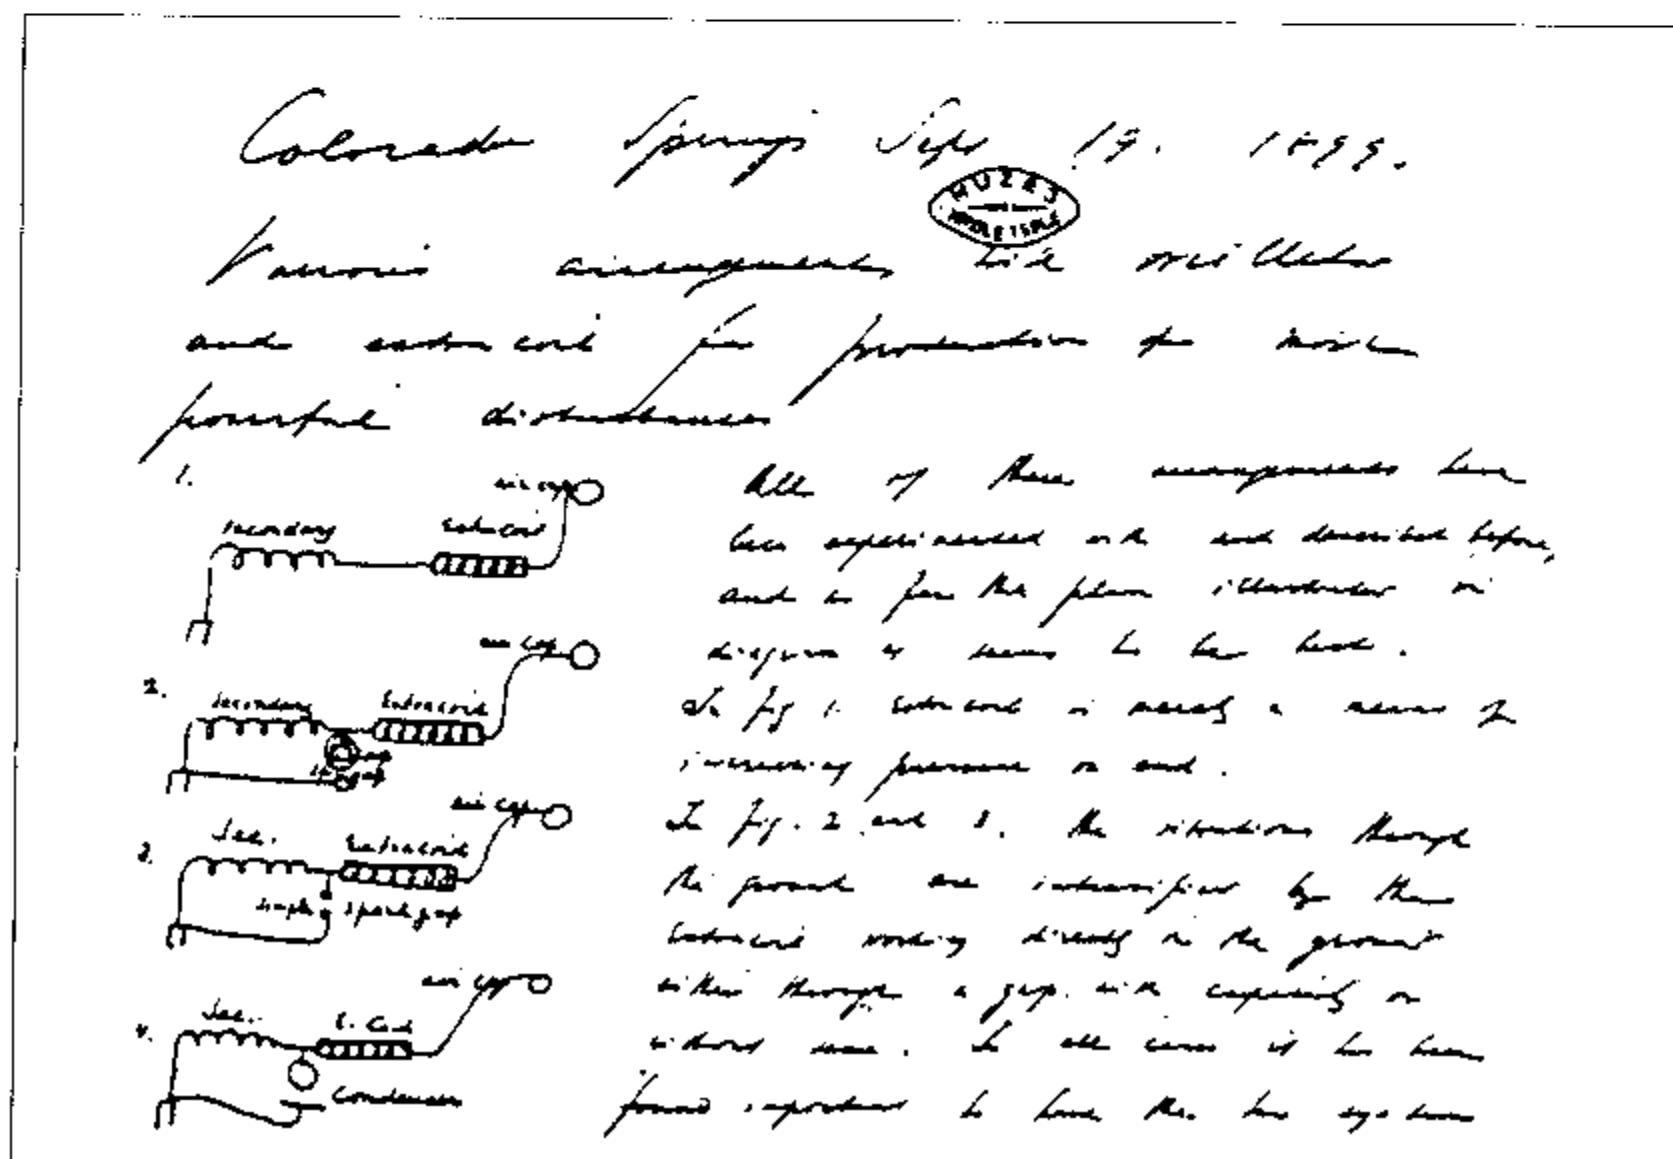 Colorado Springs Sept. 19. 1899.
MUZEJ
NIKOLE TESLE
Various arrangements with oscillator
and extra coil for production of more
powerful disturbances
1.
air cap
secondary Extra coil
2.
air cap
secondary Extra coil
gap
3.
air cap
Sec. Extra coil
spark gap
4.
air cap
Sec. E. Coil
Condenser
All of these arrangements have
been experimented with and described before,
and so far the plan illustrated in
diagram 4 seems to be best.
In fig 1. extra coil is merely a means of
increasing pressure on end.
In fig. 2 and 3. the vibrations through
the ground are intensified by the
extra coil working directly on the ground
either through a gap with capacity or
without same. In all cases it has been
found important to have the two systems